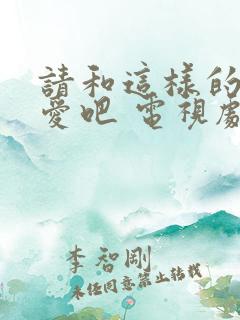 請和這樣的
愛吧 電視劇
李智剛
未经同意禁止转载